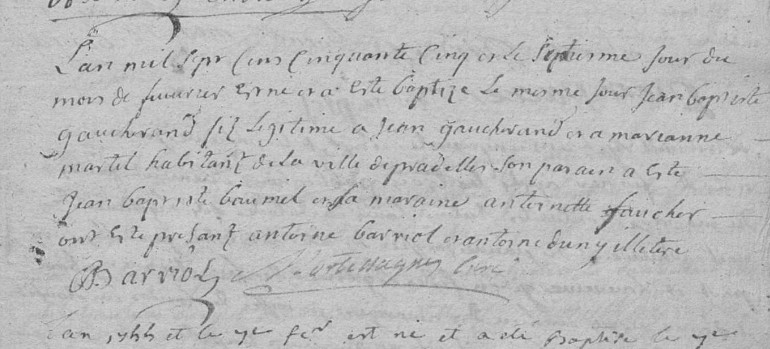 L'an mil sept cens cinquante cinq et le septieme jour du
mois de fevrier est ne et a este baptize le mesme jour Jean baptiste
gaucherand fiz legitime a Jean gaucherand et a marianne
martel habitant de la ville de pradelles son parain a este
Jean baptiste baumel et sa maraine antoinette faucher
ont este presant antoine barriol et antoine
Barriol curé
l'an 1755 et le 7e fer est né et a été Baptisé le 7e